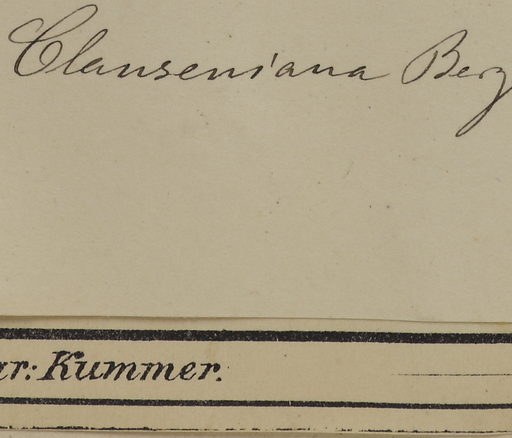 Clauseniana Berg
ar: Kummer.